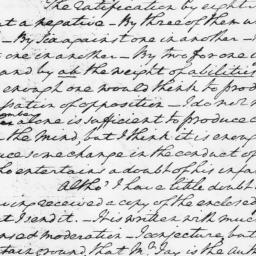 The ratification by eight
at a negative – By three of them u
– By six against one in another –
one in another – By two for one i
and by ab the weight of abilities
enough one would think to prod
pation of opposition – I do not
alone is sufficient to produce a
the mind, but I think it is enoug
uce some change in the conduct of
ho entertains a doubt of his infa
Altho' I have a little doubt
ving received a copy of the enclosed
at I send it. – It is written with much
and moderation – I conjecture, but
tain ground, that Mr. Jay is the auth